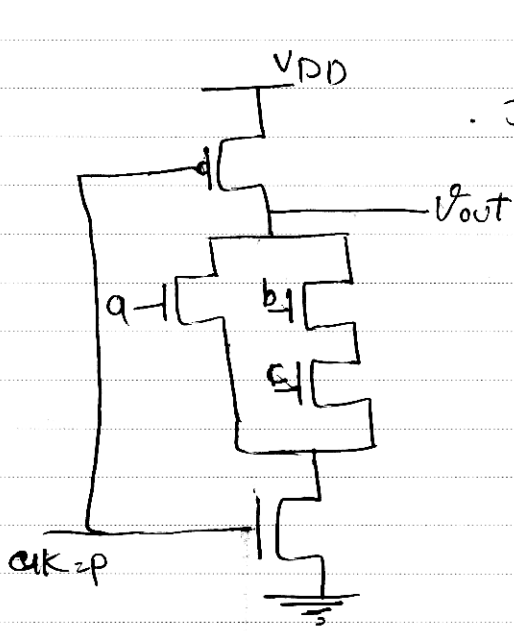 VDD
Vout
a
b
c
clk=p